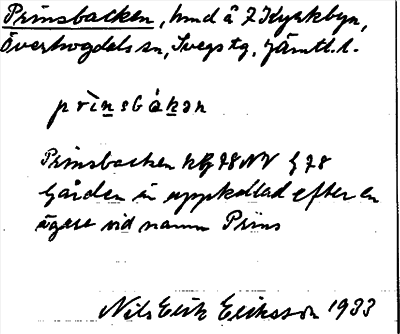 Prinsbacken, hmd å 7 Kyrkbyn,
Överhogdals sn, Svegs tg, Jämtl. l.
prìnsbákən
Prinsbacken hfl 78 NV § 78
Gården är uppkallad efter en
ägare vid namn Prins
Nils Erik Eriksson 1933